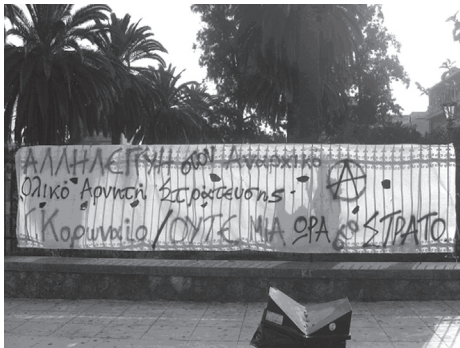 ΑΛΛΗΛΕΓΓΥΗ στον Αναρχικό Ⓐ
Ολικό Αρνητή Στράτευσης -
Γ. Κορωναίο / ΟΥΤΕ ΜΙΑ ΩΡΑ ΣΤΡΑΤΟ